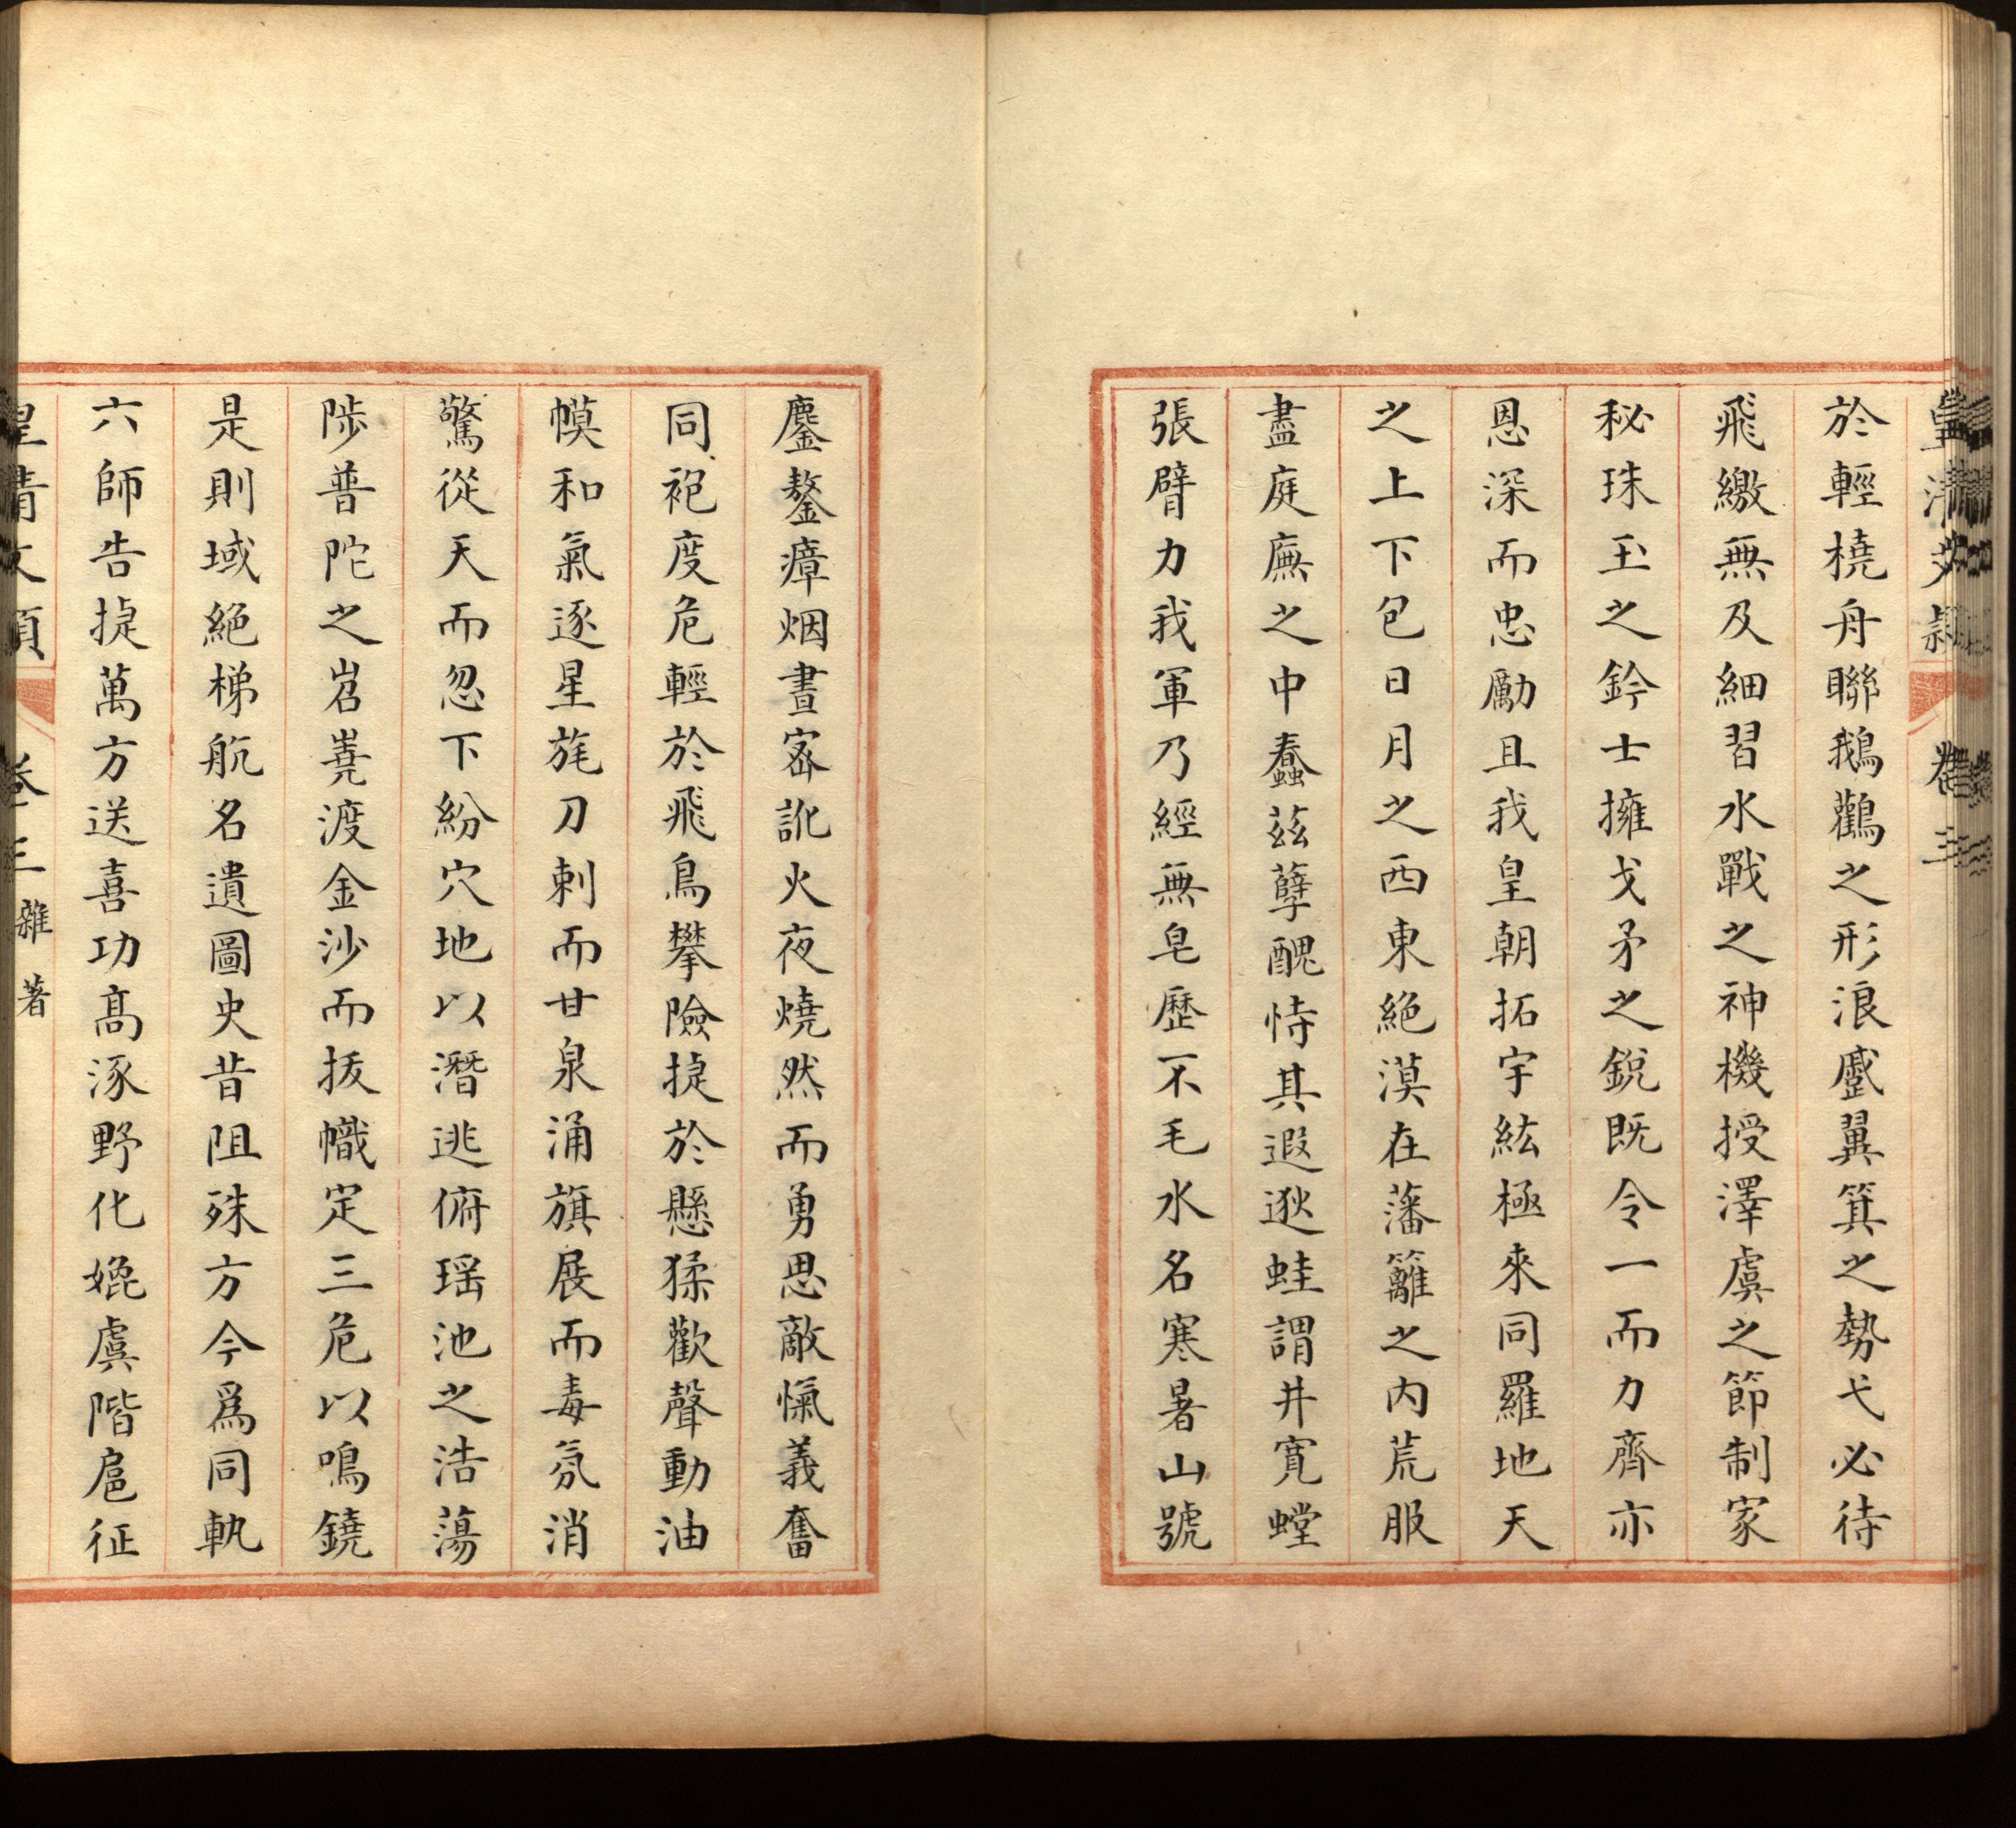 皇清文穎 卷三
於輕橈舟聯鵝鸛之形浪蹙翼箕之勢弋必待
飛繳無及細習水戰之神機授澤虞之節制家
秘珠玉之鈐士擁戈矛之銳既令一而力齊亦
恩深而忠勵且我皇朝拓宇紘極來同羅地天
之上下包日月之西東絕漠在藩籬之内荒服
盡庭廡之中蠢茲孽醜恃其遐逖蛙謂井寛螳
張臂力我軍乃經無皂歷不毛水名寒暑山號
鏖鏊瘴烟晝宻訛火夜燒然而勇思敵愾義奮
同袍度危輕於飛鳥攀險捷於懸猱歡聲動油
幙和氣逐星旄刀刺而甘泉涌旗展而毒氛消
驚從天而忽下紛穴地以潛逃俯瑶池之浩蕩
陟普陀之岧嶤渡金沙而拔幟定三危以鳴鐃
是則域絕梯航名遺圖史昔阻殊方今爲同軌
六師告捷萬方送喜功髙涿野化娩虞階扈征
皇清文穎 卷三 雜著